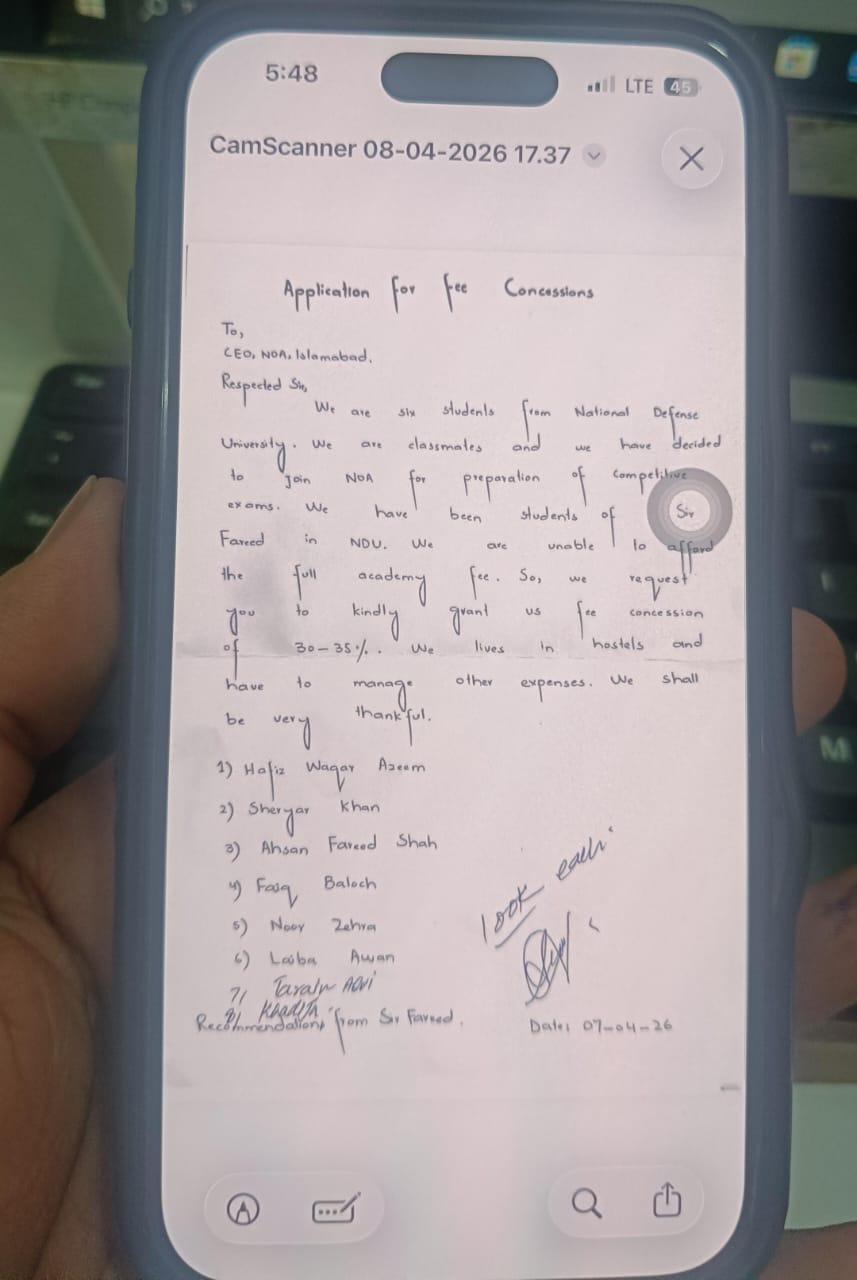 5:48
LTE 45
CamScanner 08-04-2026 17.37
Application for fee Concessions
To,
CEO, NOA, Islamabad.
Respected Sir,
We are six students from National Defense
University. We are classmates and we have decided
to join NOA for preparation of competitive
exams. We have been students of Sir
Fareed in NDU. We are unable to afford
the full academy fee. So, we request
you to kindly grant us fee concession
of 30-35%. We lives in hostels and
have to manage other expenses. We shall
be very thankful.
1) Hafiz Waqar Azeem
2) Sheryar Khan
3) Ahsan Fareed Shah
4) Baloch
5) Noor Zehra
6) Laiba Awan
7)
8)
each
Recommendations from Sir Fareed.
Date: 07-04-26
M